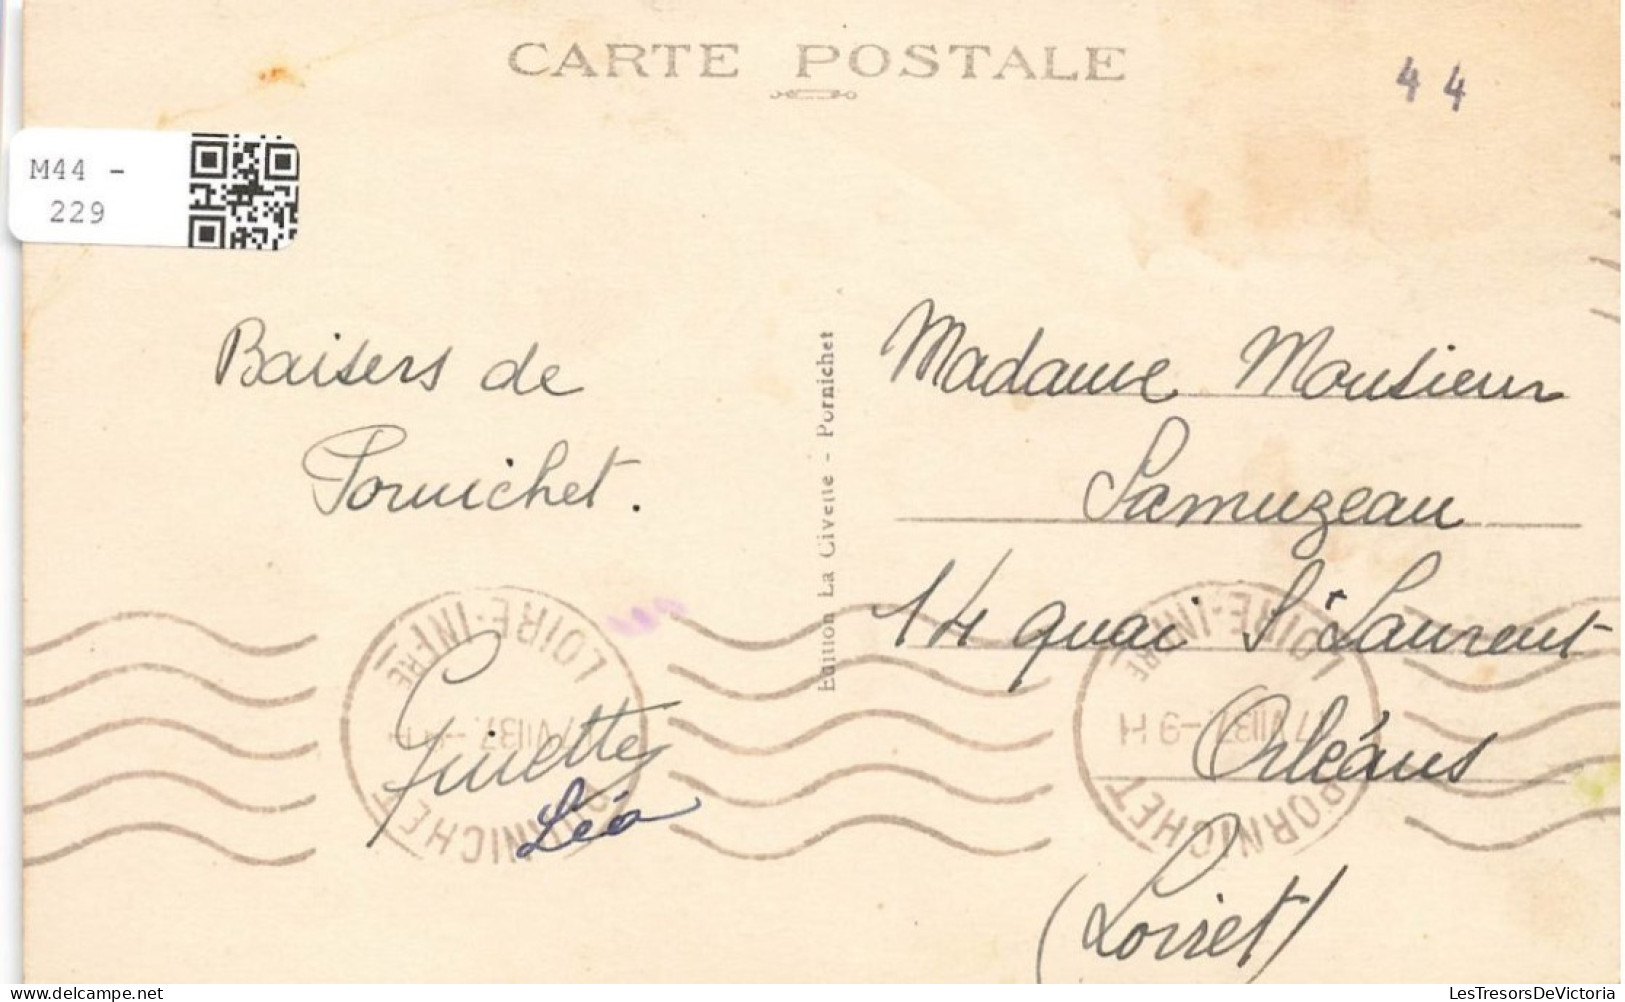 CARTE POSTALE
44
M44 -
229
Baisers de
Pornichet.
Ginette
Léo
Edition La Civette - Pornichet
Madame Monsieur
Samuzeau
14 quai St Laurent
Orléans
(Loiret)
LOIRE-INFRE
7 VII 37 - 9 H
PORNICHET
LOIRE-INFRE
7 VII 37 - 9 H
PORNICHET
LesTresorsDeVictoria